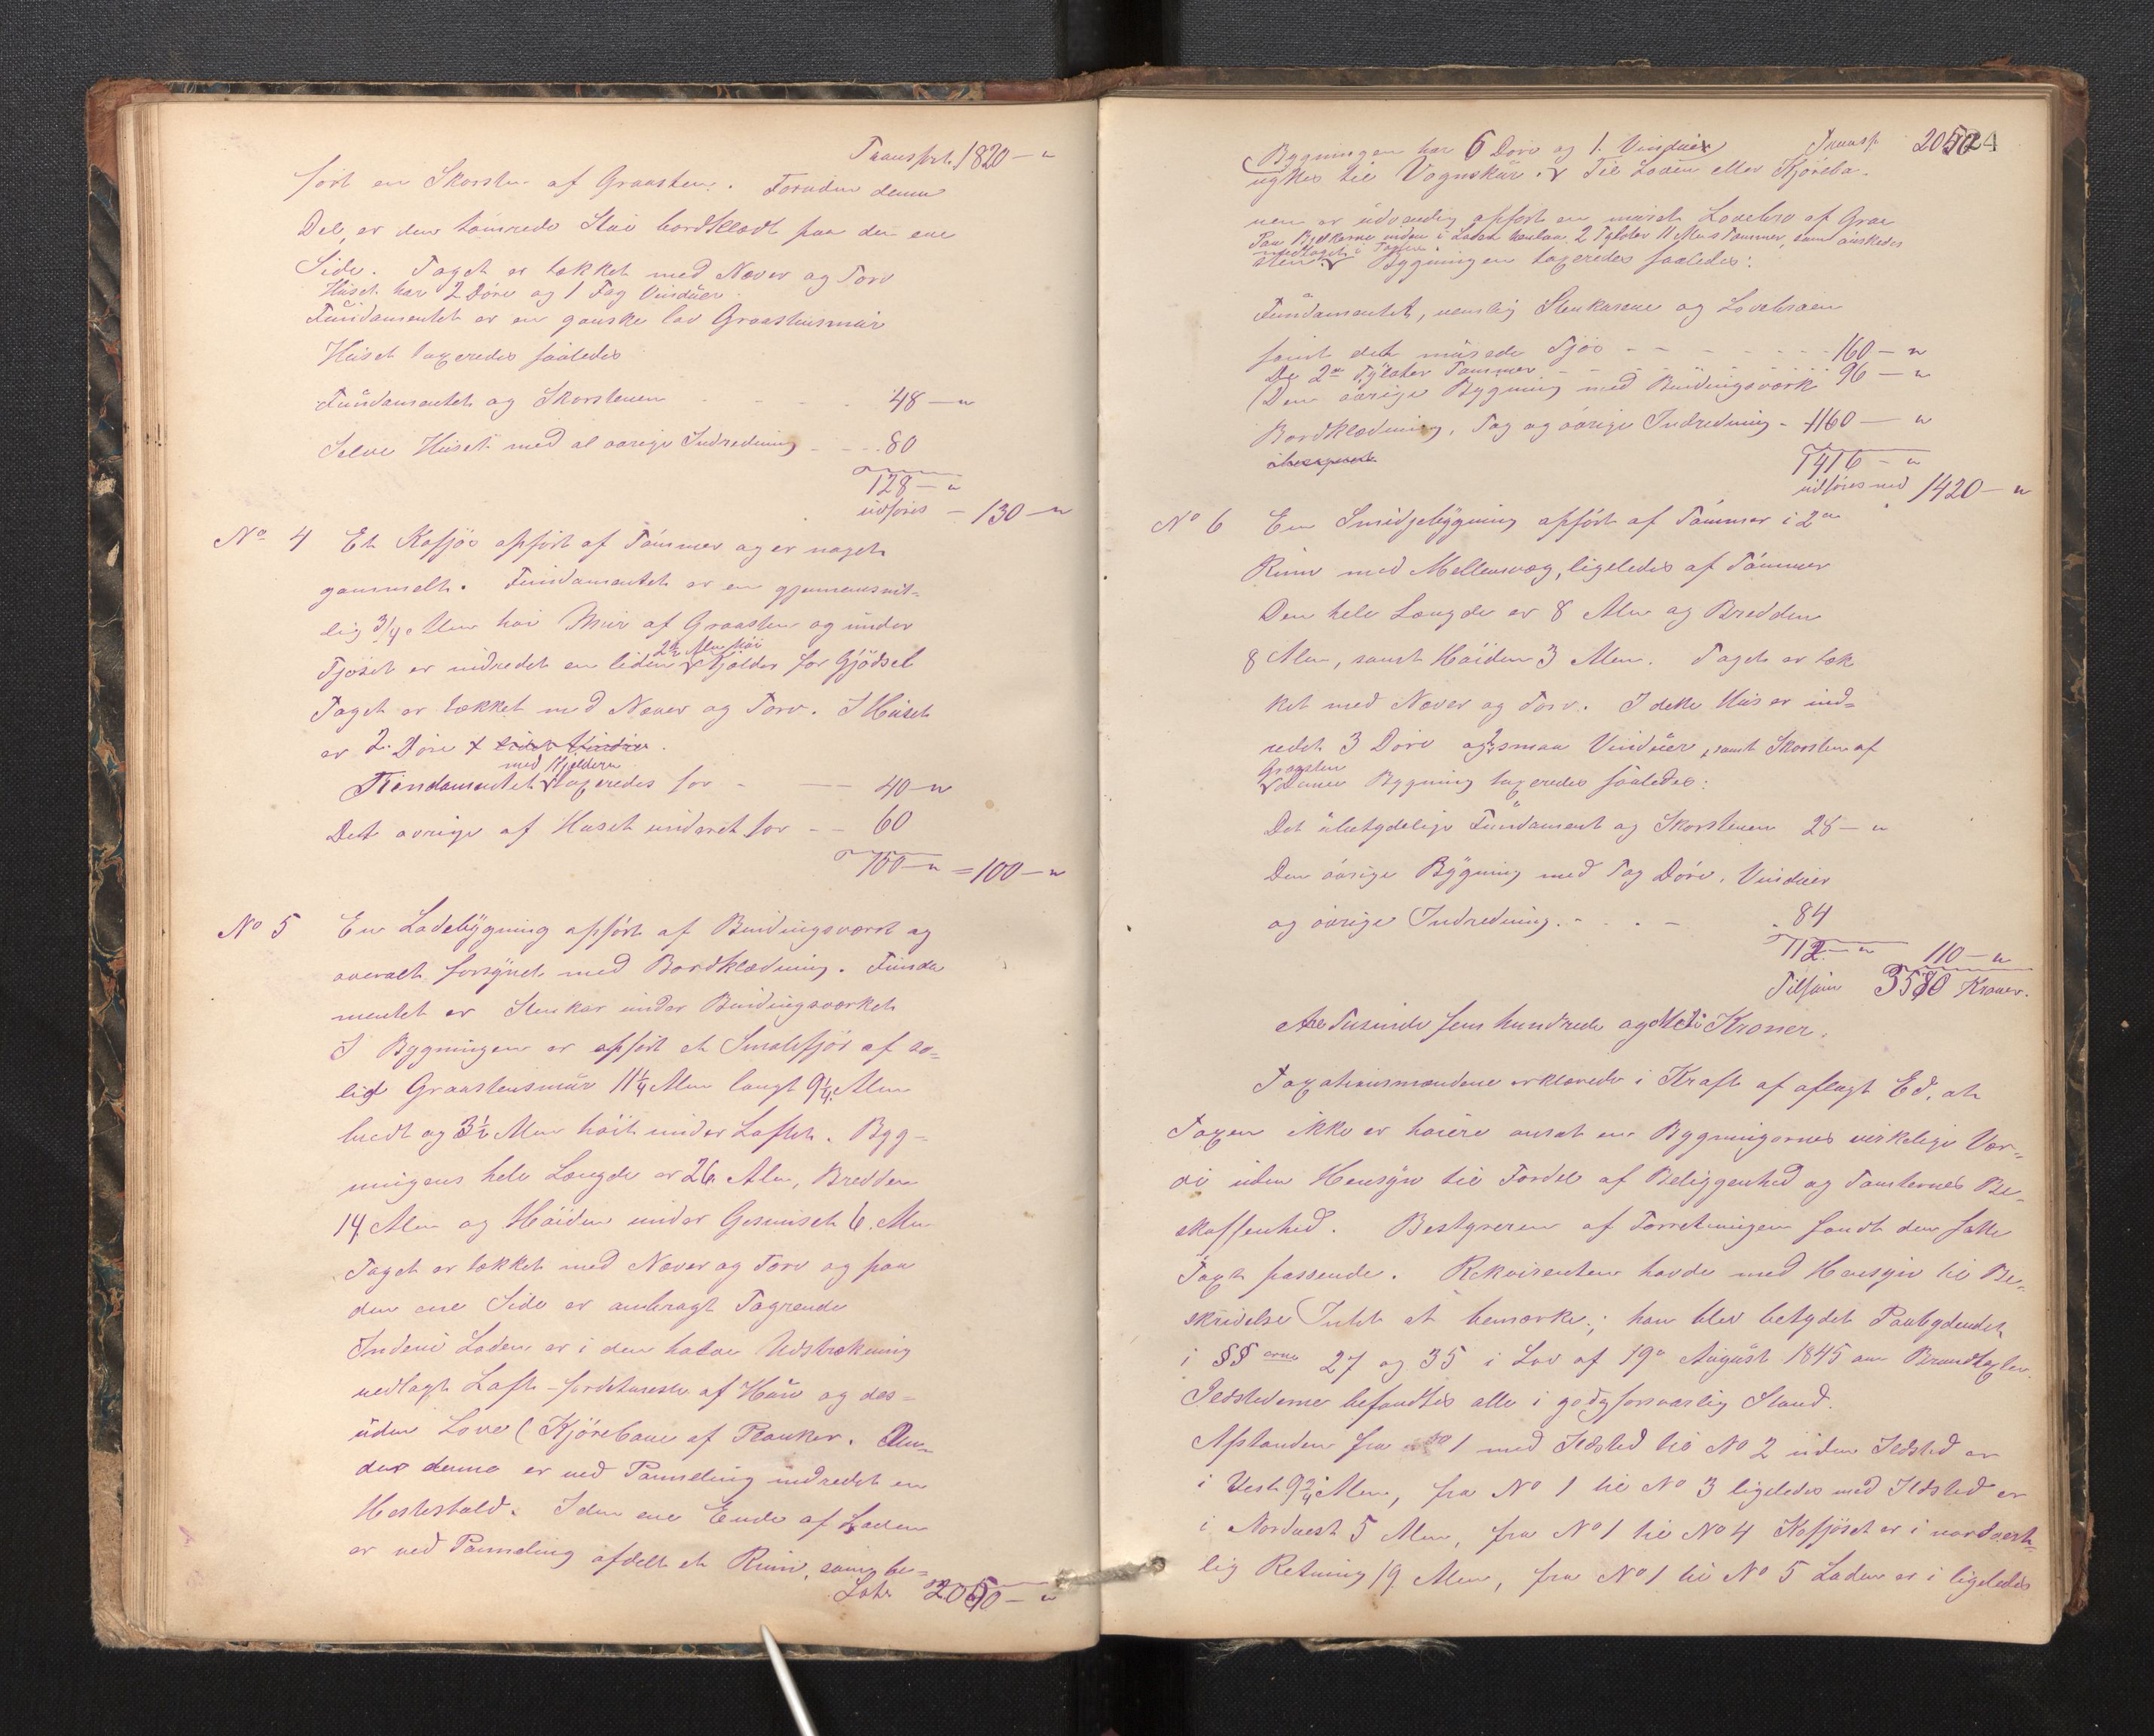 Transport 1820 — "
ført en Skorsten af Graasten. Foruden denne
Del, er den tømrede Stue bordklædt paa den ene
Side. Taget er tækket med Næver og Torv
Huset har 2 Døre og 1 Fag Vinduer
Fundamentet er en ganske lav Graastensmur
Huset taxeredes saaledes
Fundamentet og Skorstenen - - - - 48 — "
Selve Huset med al øvrige Indredning - - - 80
128 — "
udføres — 130 — "
No 4 Et Kofjøs opført af Tømmer og er noget
gammelt. Fundamentet er en gjennemsnit-
lig 3/4 Alen høi Mur af Graasten og under
2½ Alen høi
Fjøset er indredet en liden Kjelder for Gjødsel
Taget er tækket med Næver og Torv. I Huset
er 2 Døre
med Kjelderen
Fundamentet taxeredes for - — 40 — "
Det øvrige af Huset vurderet for - - 60
100 — " = 100 — "
No 5 En Ladebygning opført af Bindingsværk og
overalt forsynet med Bordklædning. Funda
mentet er Stenkar under Bindingsværket
I Bygningen er opført et Smalefjøs af so-
lid Graastensmur 11¼ Alen langt 9¼ Alen
bredt og 3½ Alen høit under Loftet. Byg-
ningens hele Længde er 26 Alen, Bredden
14 Alen og Høiden under Gesimset 6 Alen
Taget er tækket med Næver og Torv og paa
den ene Side er anbragt Tagrende
Indeni Laden er i den halve Udstrækning
nedlagt Loft - af og des-
uden Love (Kjørebane af Planker. Un-
der denne er ved Panneling indredet en
Hestestald. I den ene Ende af Laden
er ved Panneling afdelt et Rum, som be-
Lat. 2050 — "
Bygningen har 6 Døre og 1 Vindue Transp. 2050 24
nyttes til Vognskur. Til Laden eller Kjøreba-
nen er udvendig opført en muret Lovebro af Graa
Paa Bjelkerne inden i Laden henlaa 2 Tylvter 11 Alens Tømmer, som ønskedes
medtaget i Taxten.
sten. Bygningen taxeredes saaledes:
Fundamentet, nemlig Stenkarene og Lovebroen
samt det murede Fjøs - - - - - 160 — "
De 2de Tylvter Tømmer - - - - - 96 — "
Den øvrige Bygning med Bindingsværk
Bordklædning, Tag og øvrige Indredning - 1160 — "
1416 — "
udføres med 1420 — "
No 6 En Smidjebygning opført af Tømmer i 2de
Rum med Mellemvæg, ligeledes af Tømmer
Den hele Længde er 8 Alen og Bredden
8 Alen, samt Høiden 3 Alen. Taget er tæk
ket med Næver og Torv. I dette Hus er ind-
redet 3 Døre og 2 smaa Vinduer, samt Skorsten af
Graasten
Denne Bygning taxeredes saaledes:
Det ubetydelige Fundament og Skorstenen 28 — "
Den øvrige Bygning med Tag Døre, Vinduer
og øvrige Indredning - - - - 84
112 — " 110 — "
Tilsam 3580 Kroner.
Tre Tusinde fem hundrede og Otti Kroner.
Taxationsmændene erklærede i Kraft af aflagt Ed, at
Taxen ikke er høiere ansat end Bygningernes virkelige Vær-
di uden Hensyn til Fordel af Beliggenhed og Tomternes Be-
skaffenhed. Bestyreren af Forretningen fandt den satte
Taxt passende. Rekvirenten havde med Hensyn til Be-
skrivelse Intet at bemærke; han blev betydet Paabydendet
i §§erne 27 og 35 i Lov af 19de August 1845 om Brandtaxter.
Ildstederne befandtes alle i god forsvarlig Stand.
Afstanden fra No 1 med Ildsted til No 2 uden Ildsted er
i Vest 9¾ Alen, fra No 1 til No 3 ligeledes med Ildsted er
i Nordvest 5 Alen, fra No 1 til No 4 Kofjøset er i nordvest-
lig Retning 19 Alen, fra No 1 til No 5 Laden er i ligeledes